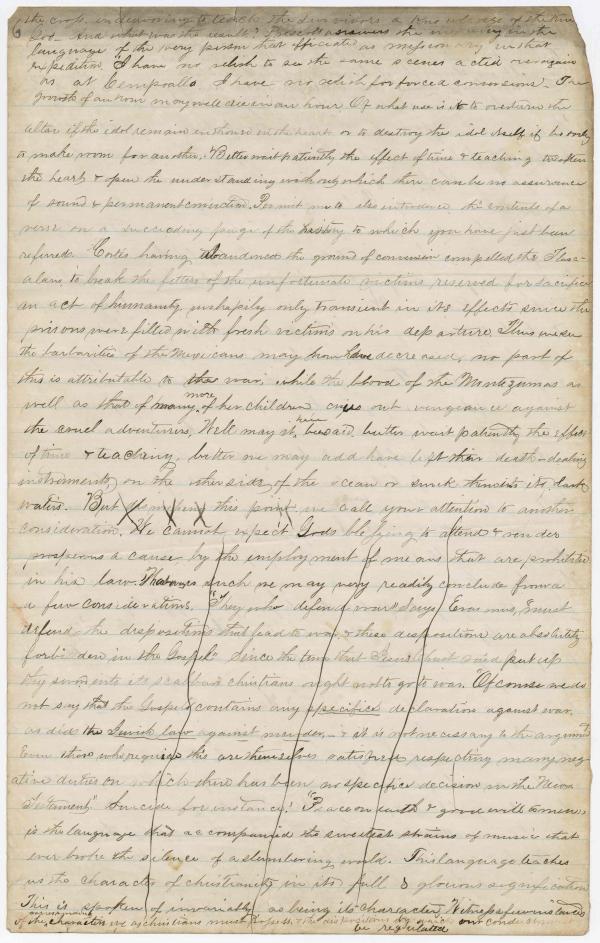 6 the crop, in deavoring to teach the survivors a knowledge of the true
God. And what was the result? Prescott answers the inquiry in the
language of the very person that officiated as missionary in that
expedition. "I have no relish to see the same scenes acted over again
as at Cempoalla I have no relish for forced conversions. The
growth of an hour may well die in an hour Of what use is it to overturn the
altar if the idol remain enthroned in the heart or to destroy the idol itself if be only
to make room for another. Better wait patiently the effect of time & teaching to soften
the heart & open the understanding without which there can be no assurance
of sound & permanent conviction. Permit me to also introduce the contents of a
verse on a succeeding page of the history to which you have just been
referred. Cortes having abandoned the ground of conversion compelled the Tlasc-
alans to break the fetters of the unfortunate victims reserved for sacrifice
an act of humanity unhapily only transient in its effects since the
prisons were filled with fresh victims on his departure. Thus we see
the barbarities of the Mexicans may how have decreased, no part of
this is attributable to the war, while the blood of the Montezumas as
well as that of many more of her children cries out vengeance against
the cruel adventurers. Well may it here be said, better wait patiently the effect
of time & teaching, better we may add have left their death-dealing
instruments on the other side of the ocean or sunk them its dark
waters. But this point we call your attention to another
consideration. We cannot expect Gods blessing to attend & render
prosperous a cause by the employment of means that are prohibited
in his law. That war is such we may very readily conclude from a
a few considerations. "They who defend war" Says Erasmus, "must
defend the dispositions that lead to war & these dispositions are absolutely
forbidden in the Gospel. Since the time that Jesus Christ said put up
thy sword into its scabbard christians ought not to go to war. Of course we do
not say that the Gospel contains any specifice declaration against war,
as did the Jewish law against murder, - & it is not necessary to the argument
Even those who require this are themselves satisfied respecting many neg
ative duties on which there has been no specifice decision in the New
Testament" Suicide for instance! "Peace on earth & good will to men,"
is the language that accompanied the sweetest strains of music that
ever broke the silence of a slumbering world. This language teaches
us the character of christianity in its full & glorious signification
This is spoken of invariably as being its character Witness a few instances
of the character we as christians must possess & the dispositions by which our conduct must
be regulated